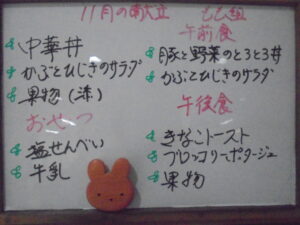 11月の献立
中華丼
かぶとひじきのサラダ
果物(添)
おやつ
塩せんべい
牛乳
もも組
午前食
豚と野菜のとろとろ丼
かぶとひじきのサラダ
午後食
きなこトースト
ブロッコリーポタージュ
果物